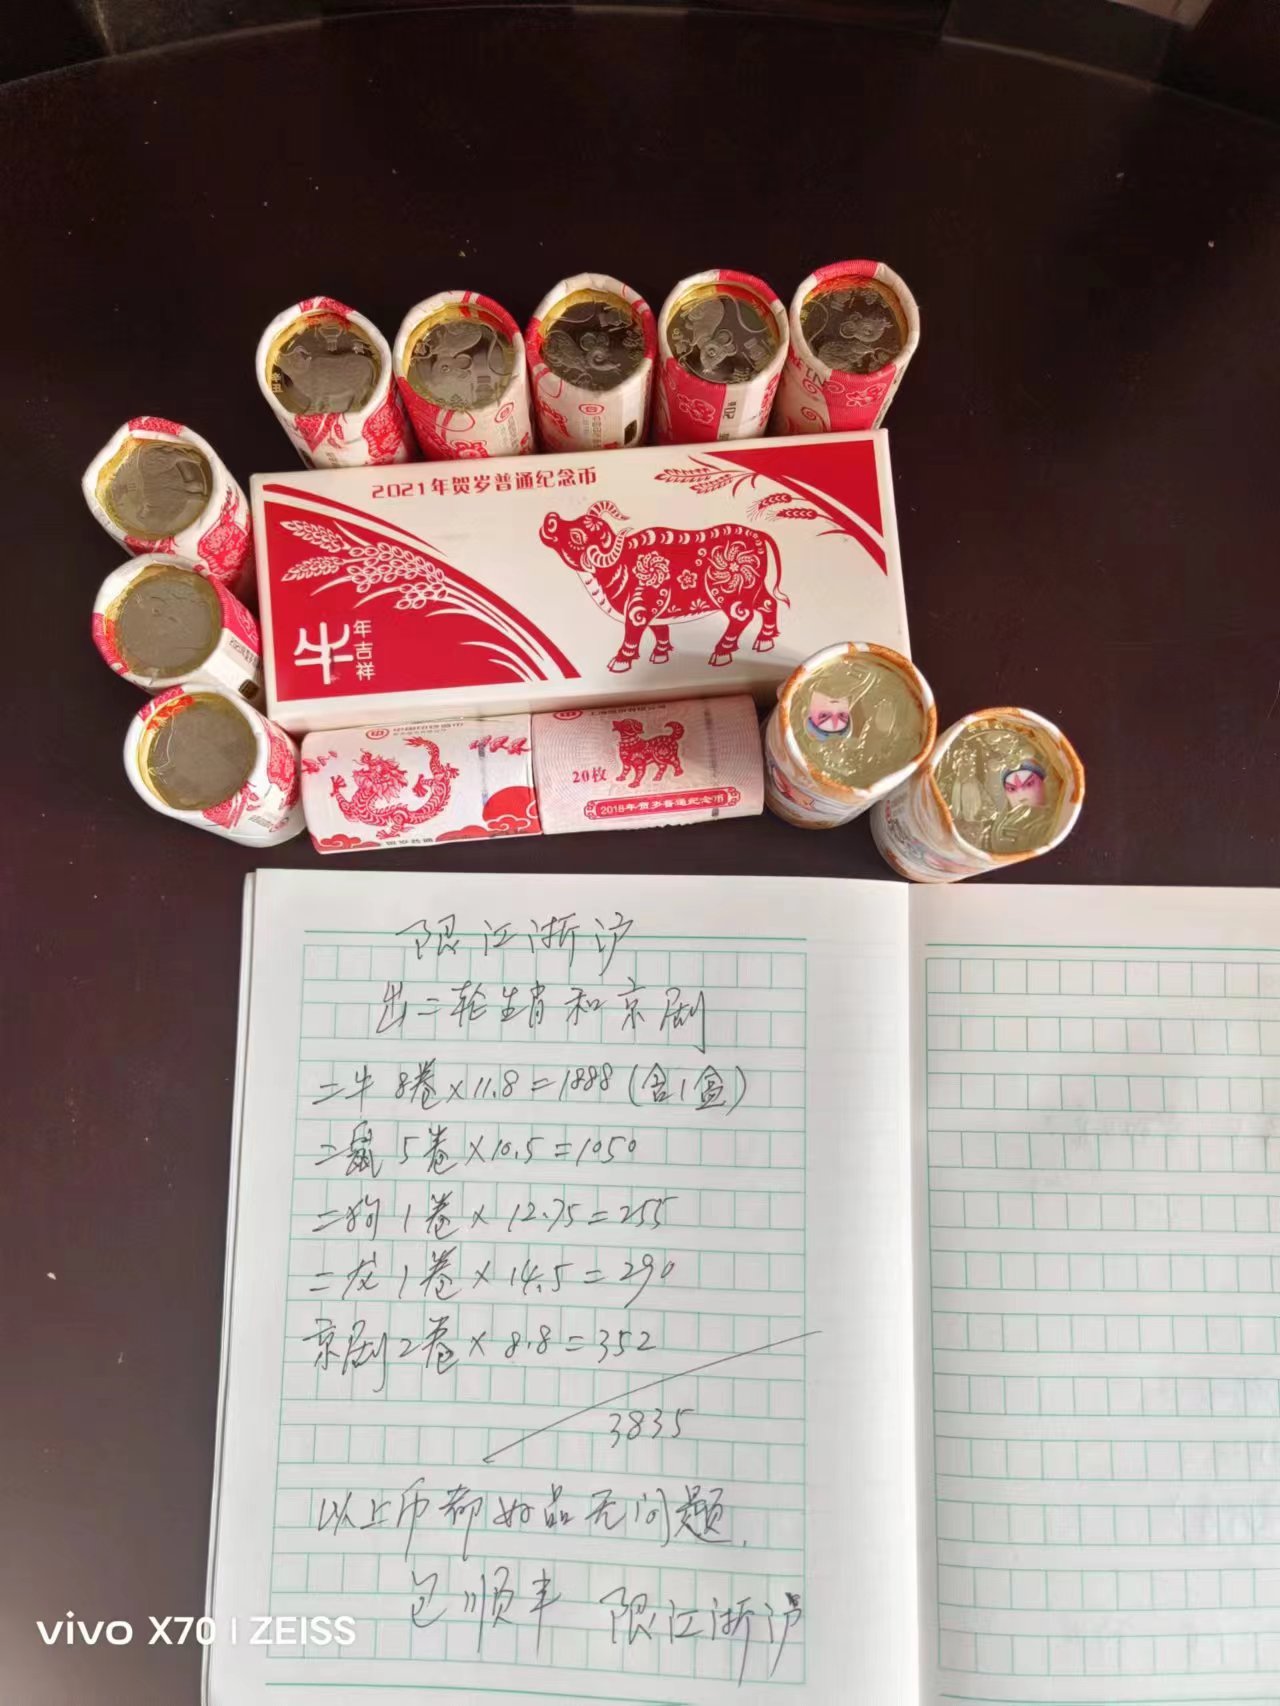 2021年贺岁普通纪念币
牛
年
吉
祥
20枚
2018年贺岁普通纪念币
贺岁普通
限江浙沪
出二轮生肖和京剧
二牛 8卷×11.8=1888(含1盒)
二鼠 5卷×10.5=1050
二狗 1卷×12.75=255
二龙 1卷×14.5=290
京剧2卷×8.8=352
3835
以上币都好品无问题.
包顺丰 限江浙沪
vivo X70 | ZEISS